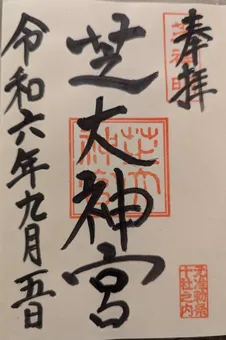 奉拝
芝大神宮
令和六年九月五日
芝神明
芝大神宮
元准勅祭十社之内